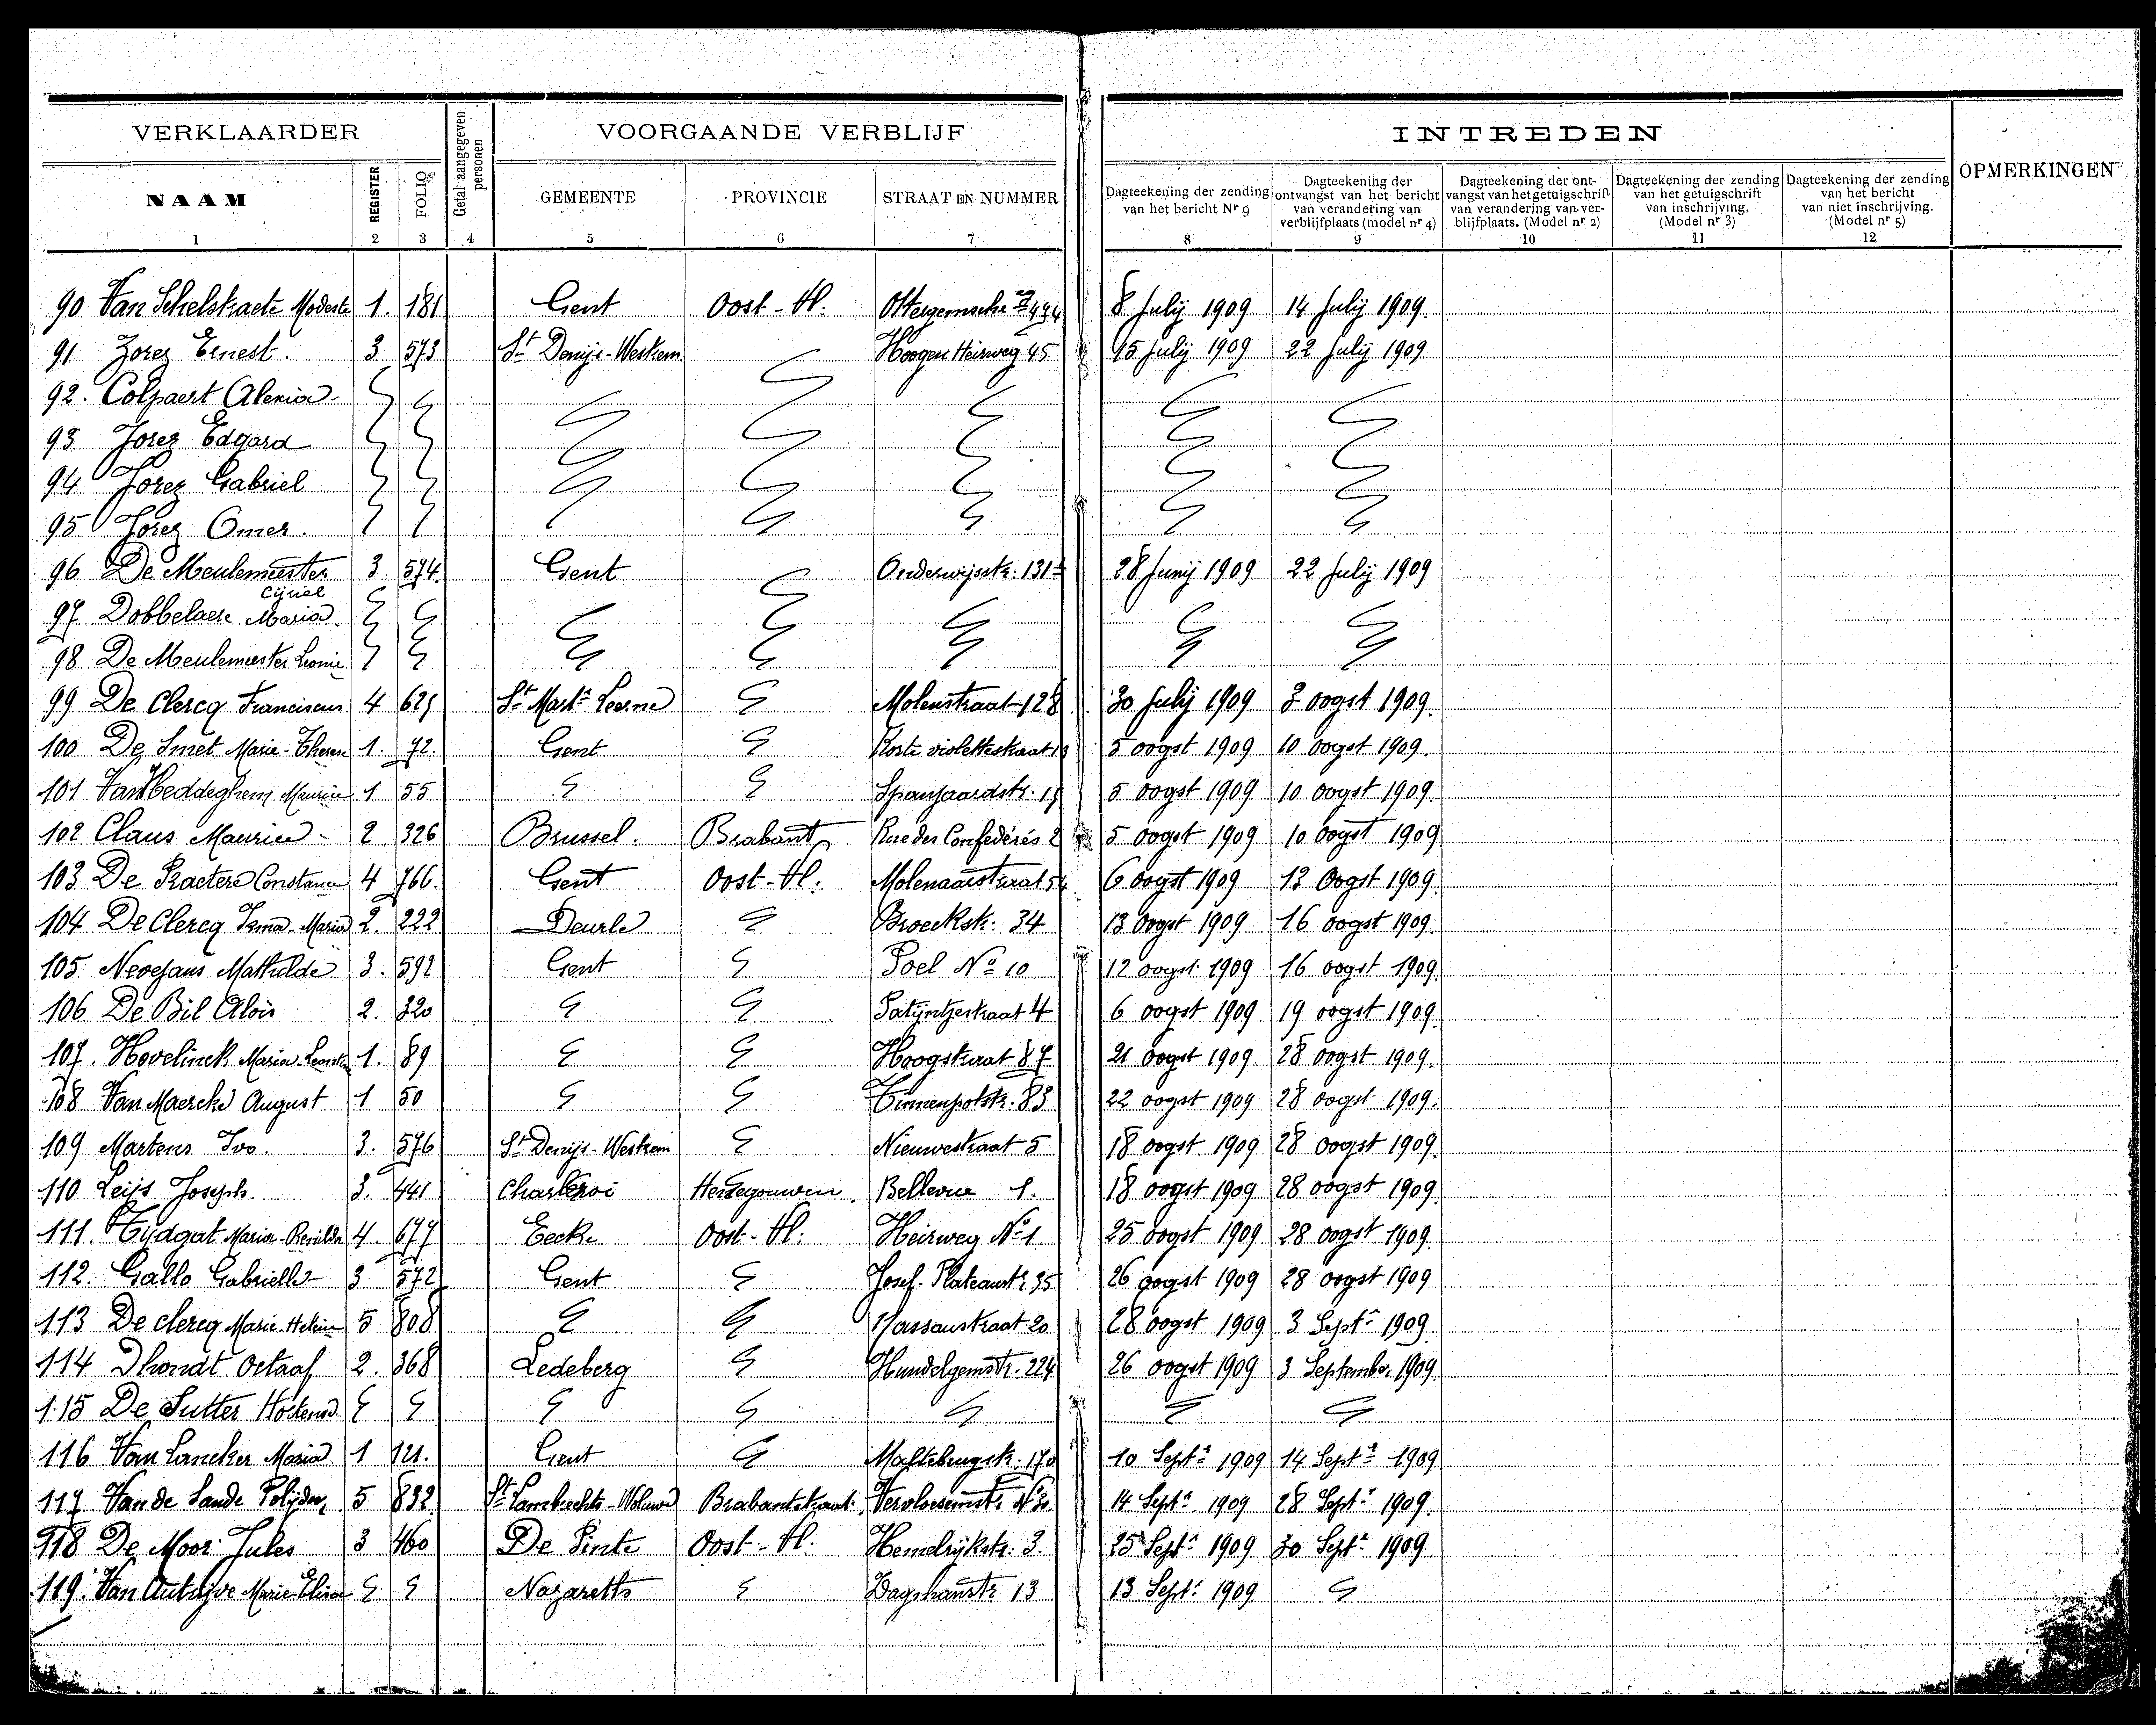 VERKLAARDER Getal aangegeven personen VOORGAANDE VERBLIJF INTREDEN OPMERKINGEN
NAAM REGISTER FOLIO GEMEENTE PROVINCIE STRAAT EN NUMMER Dagteekening der zending van het bericht Nr 9 Dagteekening der ontvangst van het bericht van verandering van verblijfplaats (model nr 4) Dagteekening der ontvangst van het getuigschrift van verandering van verblijfplaats. (Model nr 2) Dagteekening der zending van het getuigschrift van inschrijving. (Model nr 3) Dagteekening der zending van het bericht van niet inschrijving. (Model nr 5)
1 2 3 4 5 6 7 8 9 10 11 12
90 Van Schelstraete Modeste 1. 181 Gent Oost-Vl. 8 July 1909 14 July 1909.
91 Jorez Ernest. 3 573 St Denijs-Westrem Hoogen Heirweg 45 15 July 1909 22 July 1909
92. Colpaert
93 Jorez Edgard
94 Jorez Gabriel
95 Jorez Omer.
96 De Meulemeester Cyriel 3 574. Gent Onderwijsstr. 131 28 Junij 1909 22 July 1909
97. Dobbelaere Maria
98 De Meulemeester Leonie
99 De Clercq Franciscus 4 625 St Mart. Leerne Molenstraat 128 30 July 1909 3 oogst 1909.
100 De Smet Marie-Therese 1. 72. Gent Korte violettestraat 5 oogst 1909 10 oogst 1909.
101 Maurice 1 55 Spanjaardstr. 5 oogst 1909 10 oogst 1909.
102 Claus Maurice - 2 326 Brussel. Brabant Rue des Confédérés 2 5 oogst 1909 10 oogst 1909
103 De Praetere Constance 4 766. Gent Oost-Vl. Molenaarstraat 6 oogst 1909 13 Oogst 1909.
104 De Clercq Irma-Maria 2. 222 Deurle Broeckstr. 34 13 Oogst 1909 16 oogst 1909.
105 Nevejans Mathilde 3. 592 Gent Poel No 10 12 oogst 1909 16 oogst 1909.
106 De Bil Aloïs 2. 320 Patijntjestraat 4 6 oogst 1909 19 oogst 1909.
107. Hovelinck Maria 1. 89 Hoogstraat 87 21 oogst 1909 28 oogst 1909.
108 Van Maercke August 1 50 Tinnenpotstr. 83 22 oogst 1909 28 oogst 1909.
109 Martens Ivo. 3. 576 St Denijs-Westrem Nieuwestraat 5 18 oogst 1909 28 oogst 1909.
110 Leijs Joseph. 3. 441 Charleroi Henegouwen Bellevue 1. 18 oogst 1909 28 oogst 1909.
111. Tijdgat Maria 4 677 Eecke Oost-Vl. Heirweg No 1 25 oogst 1909 28 oogst 1909.
112. Gallo Gabrielle 3 572 Gent Josef. Plateaustr. 35 26 oogst 1909 28 oogst 1909
113 De clercq Marie 5 808 Nassaustraat 20 28 oogst 1909 3 Sept. 1909
114 Dhondt Octaaf 2. 368 Ledeberg Hundelgemstr. 224 26 oogst 1909 3 September 1909
115 De Sutter
116 Van Lancker Maria 1 121. Gent 10 Sept. 1909 14 Sept. 1909
117 Van de Sande Polijdor 5 832 St Lambrechts-Woluwe 14 Sept. 1909 28 Sept. 1909.
118 De Moor Jules 3 460 De Pinte Oost-Vl. Hemelrijkstr. 3. 25 Sept. 1909 30 Sept. 1909
119. Van Autrijve Marie Elisa Nazareth 13 13 Sept. 1909